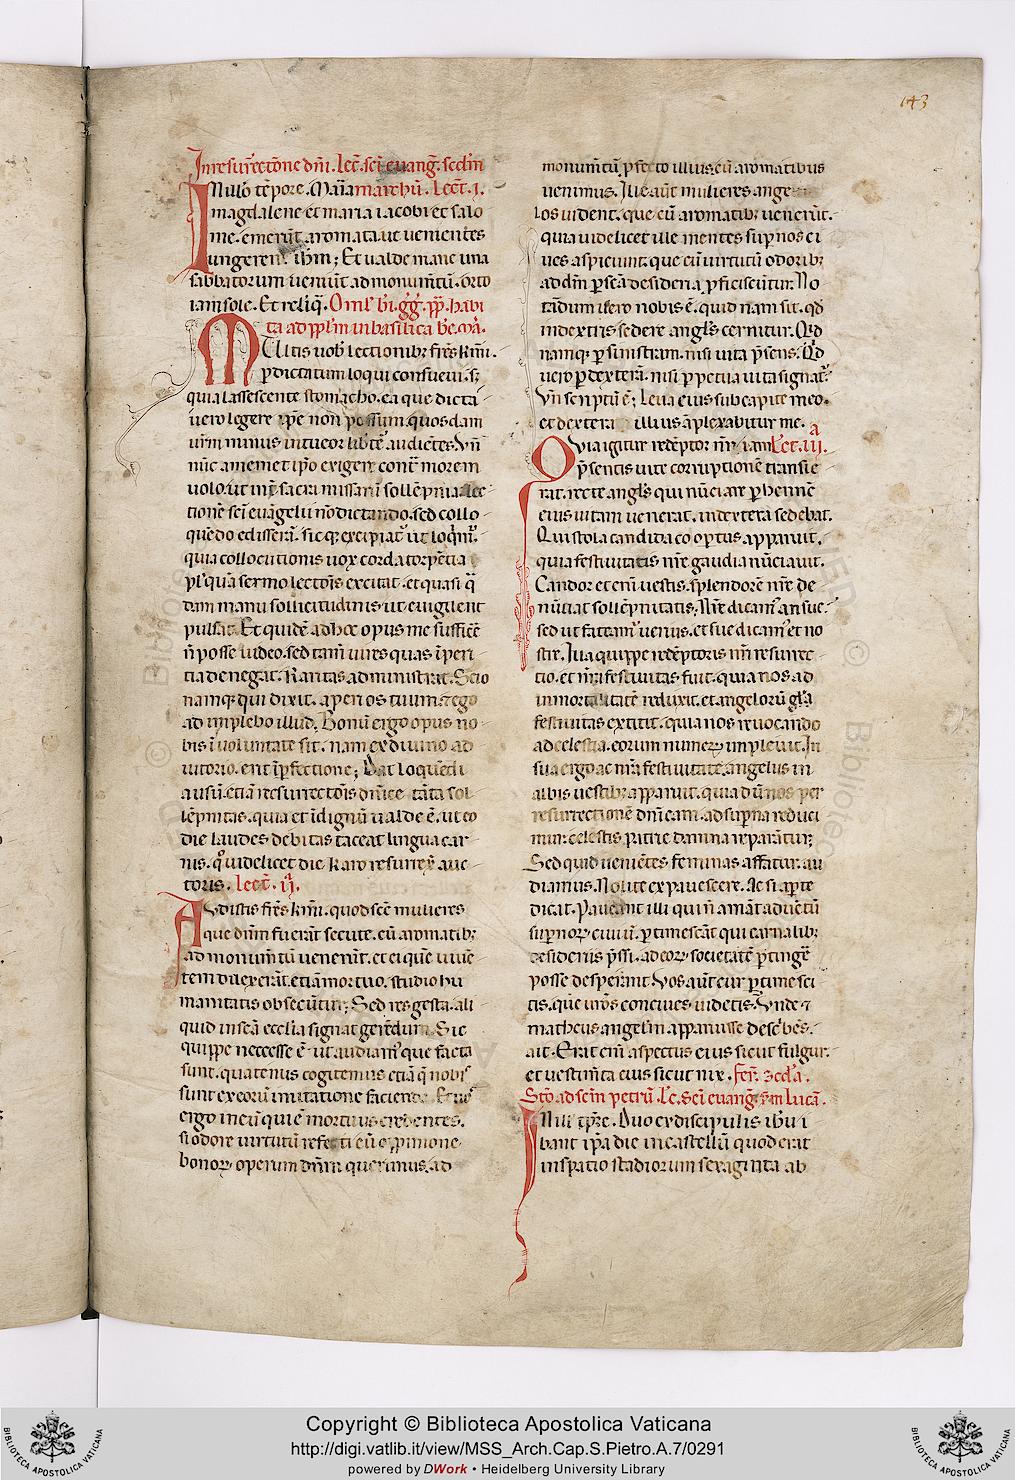 143
In resurrectõne dñi. Lec̃. sc̃i euang̃. scd̃m
IN illo tẽpore. Maria matheũ. Lect̃. j.
magdalene et maria iacobi et salo
me. emerũt aromata. ut uenientes
ungerent ihm; Et ualde mane una
sabbatorum ueniũt ad monumtũ. orto
iam sole. Et reliq̃. Oml̃. bi. gg̃. pp̃. habi
ta ad ppl̃m in basilica be. ma.
MUltis uob̃ lectionib; fr̃s km̃i.
p dictatum loqui consueui. s;
quia lassescente stomacho. ea que dicta
uero legere ipse non possum. quosdam
ur̃m minus intueor libt̃e audiẽtes. Vñ
nũc a memet ip̃o exigere cont̃ morem
uolo. ut int̃ sacra missarũ sollẽpnia. lec
tionẽ sc̃i euãgelii nõ dictando. sed collo
quẽdo edisserã. sicq; excipiat̃ ut loq̃m̃.
quia collocutionis uox corda torpẽtia
pl' quã sermo lectiõis excitat. et quasi q̃
dam manu sollicitudinis ut euigilent
pulsat. Et quidẽ ad hoc opus me sufficẽ
ñ posse uideo. sed tam̃ uires quas ĩperi
tia denegat. karitas administrat. Scio
namq; qui dixit. aperi os tuum. 7 ego
adimplebo illud. Bonũ ergo opus no
bis ĩ uoluntate sit. nam ex diuino ad
iutorio. erit ĩ pfectione; Dat loquẽdi
ausũ. etiã resurrectiõis dñice tãta sol
lẽpnitas. quia et ĩdignũ ualde ẽ. ut eo
die laudes debitas taceat lingua car
nis. q̃ uidelicet die karo resurrex̃ auc
toris. Lect̃. ij.
AUdistis fr̃s km̃i. quod sc̃e mulieres
que dñm fuerãt secute. cũ aromatib;
ad monumtũ uenerũt. et ei quẽ uiuẽ
tem dilexerãt. etiã mortuo. studio hu
manitatis obsecũtur; Sed res gesta. ali
quid in sc̃a ecclia signat gerẽdum. Sic
quippe necesse ẽ. ut audiam' que facta
sunt. quatenus cogitemus etiã q̃ nobis
sunt ex eorũ imitatione facienda. Et nos
ergo in eũ qui ẽ mortuus credentes.
si odore uirtutũ referti cũ opinione
bonor̃. operum dñm querimus. ad
monumtũ pfecto illius. cũ aromatibus
uenimus. Ille aũt mulieres ange
los uident. que cũ aromatib; uenerũt.
quia uidelicet ille mentes supnos ci
ues aspiciunt. que cũ uirtutũ odorib;
ad dñm p sc̃a desideria pficiscũtur. No
tãdum uero nobis ẽ. quid nam sit. qd̃
in dextris sedere angl̃s cernitur. Qid
namq; p sinistram. nisi uita psens. Q̃d
uero p dexterã. nisi ppetua uita signat̃.
Vñ scriptũ ẽ; Leua eius sub capite meo.
et dextera illius ãplexabitur me.
Quia igitur redẽptor nr̃ iam Lect. iij.
psentis uite corruptionẽ transie
rat. recte angl̃s qui nũciare phennẽ
eius uitam uenerat. in dextera sedebat.
Qui stola candida coopertus apparuit.
quia festiuitatis nr̃e gaudia nũciauit.
Candor etenĩ uestis. splendorẽ nr̃e de
nũciat sollẽpnitatis. Nr̃e dicam' an sue.
sed ut fateam' uerius. et sue dicam' et no
stre. Illa quippe redẽptoris nr̃i resurrec
tio. et nr̃a festiuitas fuit. quia nos ad
inmortalitatẽ reduxit. et angelorũ
festiuitas extitit. quia nos reuocando
ad celestia. eorum numer̃ impleuit. In
sua ergo ac nr̃a festiuitate. angelus in
albis uestib; apparuit. quia dũ nos per
resurrectionẽ dñicam. ad supna reduci
mur. celestis patrie damna reparãtur;
Sed quid ueniẽtes feminas affatur. au
diamus. Nolite expauescere. Ac si apte
dicat. Paueant illi qui ñ amãt aduẽtũ
supnor̃. ciuiũ. ptimescãt qui carnalib;
desideriis pssi. ad eor̃. societatẽ ptingẽ
posse desperant. Vos aũt cur ptimesci
tis. que ur̃os conciues uidetis. Vnde 7
matheus angelm̃ apparuisse describẽs.
ait. Erat enĩ aspectus eius sicut fulgur.
et uestimta eius sicut nix. fer̃. scd̃a.
Stõ. ad sc̃m petrũ. Lc̃. sc̃i euang̃. sm̃ Lucã.
IN illo tp̃re. Duo ex discipulis ihu i
bant ip̃a die in castellũ quod erat
in spatio stadiorum sexaginta ab
Copyright © Biblioteca Apostolica Vaticana
http://digi.vatlib.it/view/MSS_Arch.Cap.S.Pietro.A.7/0291
powered by DWork • Heidelberg University Library
BIBLIOTECA APOSTOLICA VATICANA
BIBLIOTECA APOSTOLICA VATICANA